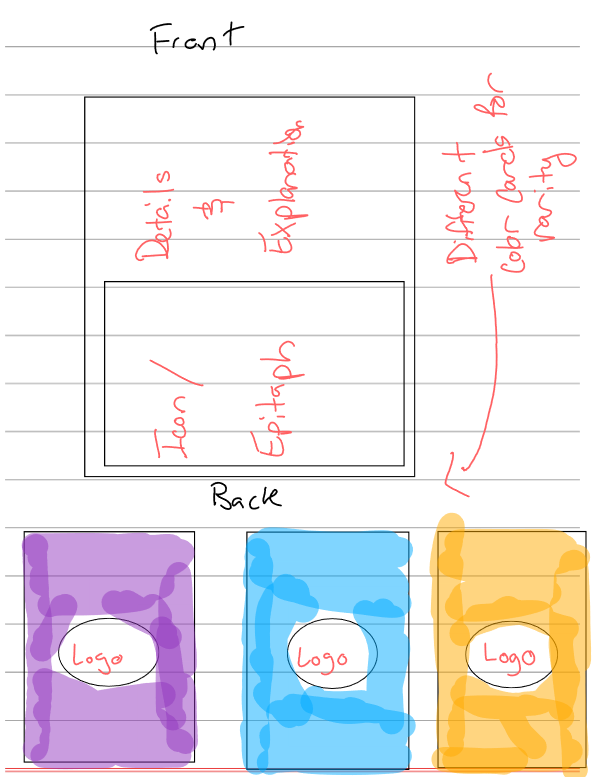 Front
Details
&
Explanation
Icon /
Epitaph
Different
color cards for
rarity
Back
Logo
Logo
Logo